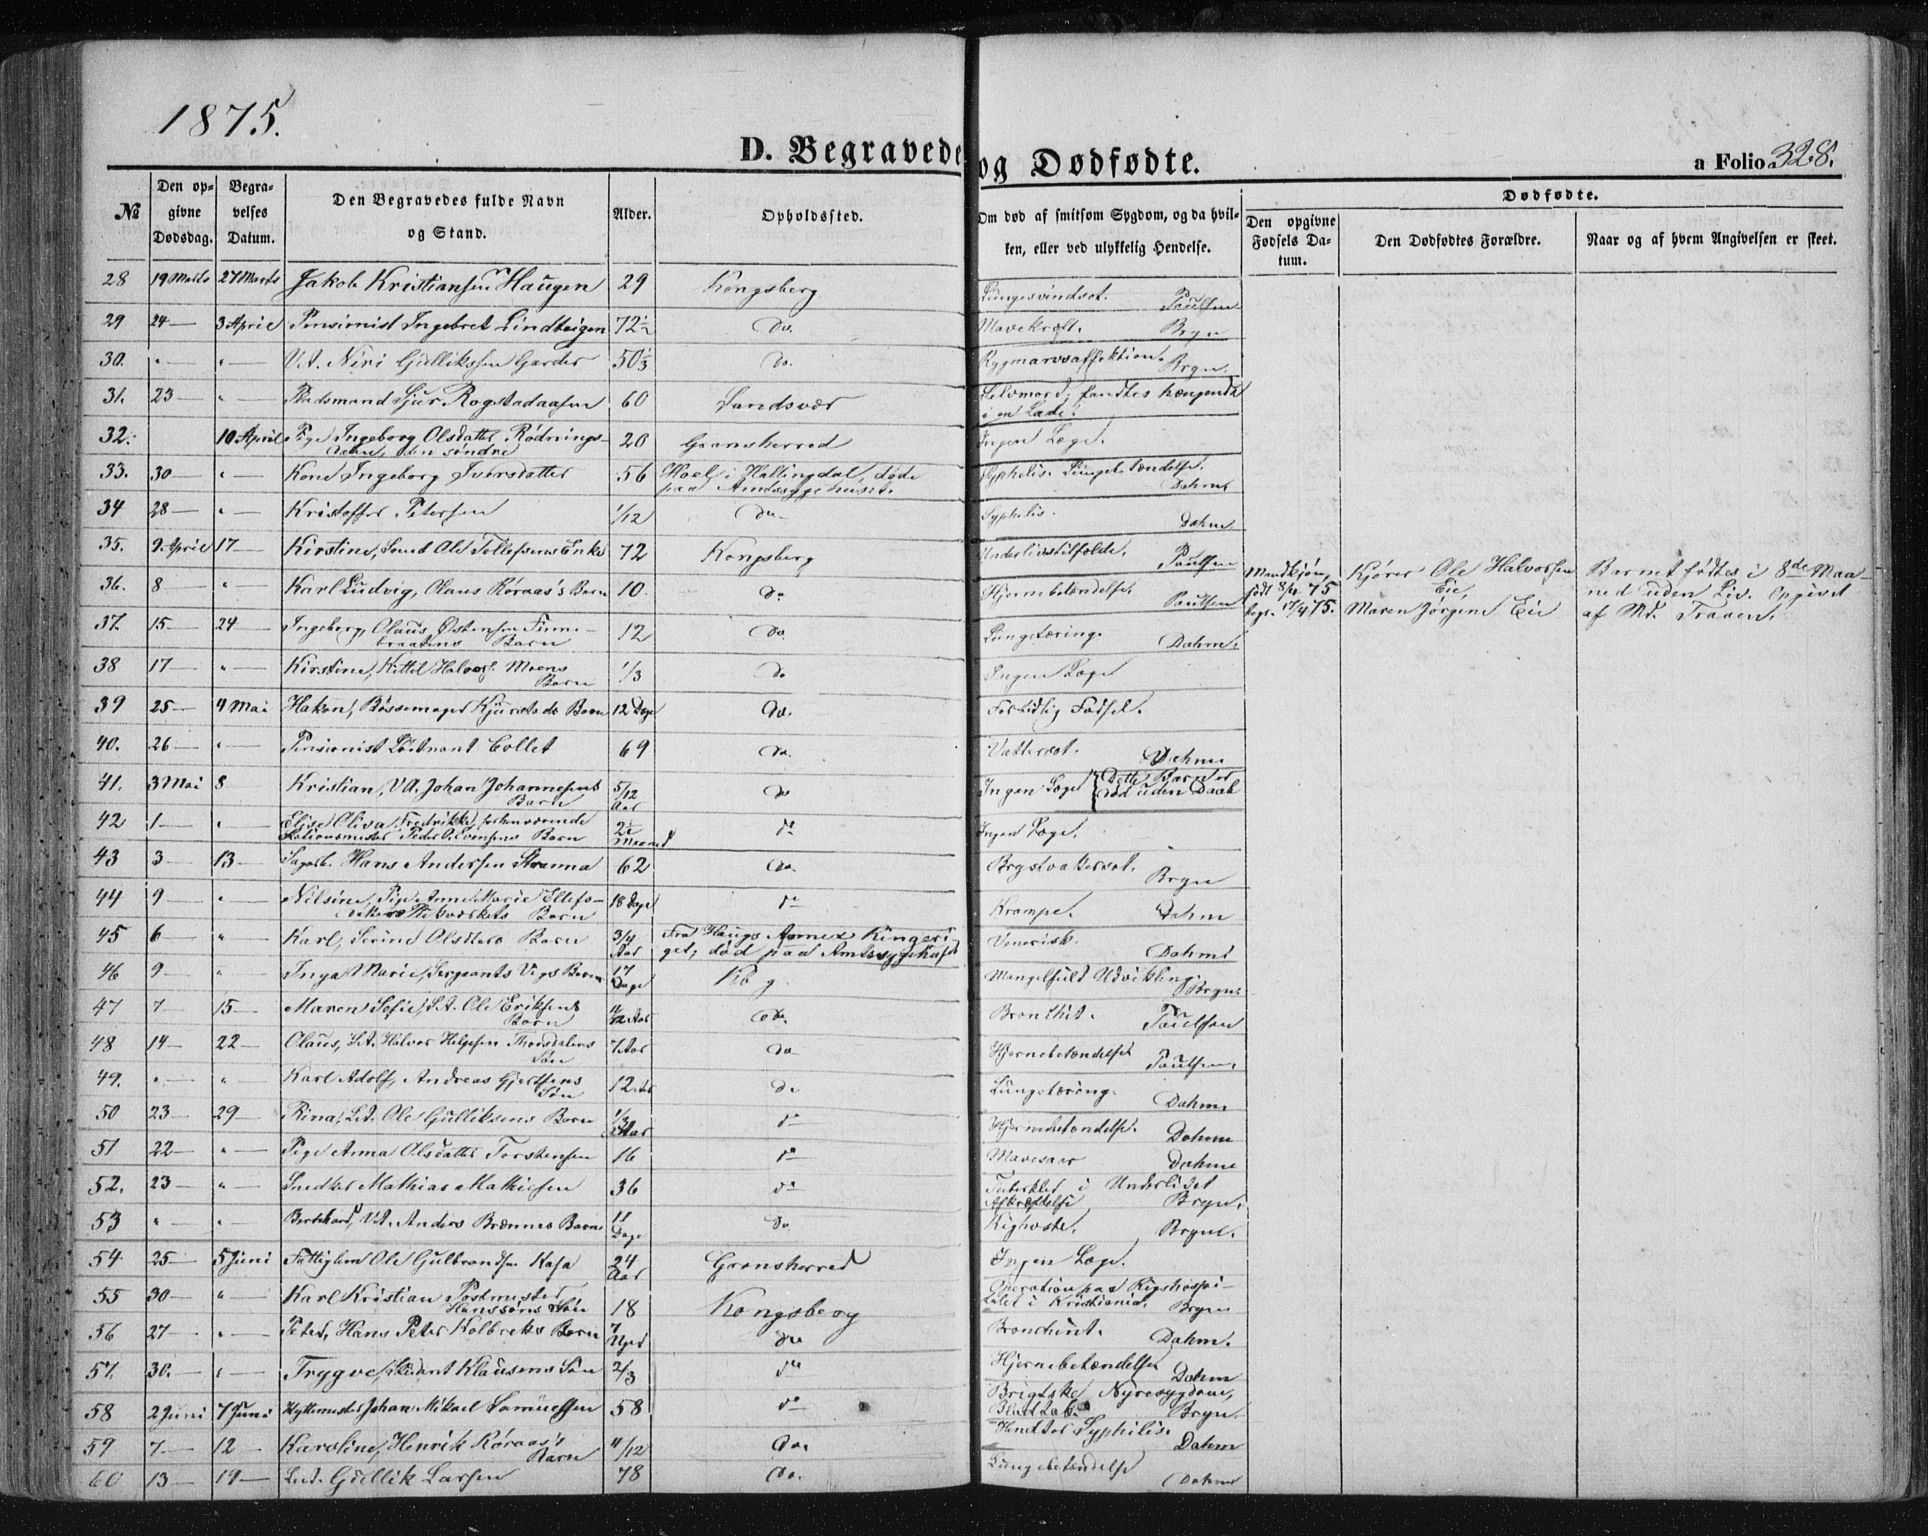 1875.
D. Begravede og Dødfødte.
a Folio 328.
№ | Den opgivne Dødsdag. | Begravelses Datum. | Den Begravedes fulde Navn og Stand. | Alder. | Opholdssted. | Om død af smitsom Sygdom, og da hvilken, eller ved ulykkelig Hendelse. | Dødfødte. Den opgivne Fødsels Datum. | Den Dødfødtes Forældre. | Naar og af hvem Angivelsen er skeet.
28 | 19 Marts | 27 Marts | Jakob Kristiansen Haugen | 29 | Kongsberg | Lungesvindsot. Paulsen
29 | 24 — | 3 April | Pensionist Ingebret Lindteigen | 72½ | do. | Mavekræft. Bryn
30. | " | " | Gulliksen | 50⅓ | do. | Rygmarvsaffektion. Bryn.
31. | 23 — | " | Pladsmand Sjur Rogstadaasen | 60 | Sandsvær | Selvmord; fandtes hængende i en Lade.
32. | | 10 April | Pige Ingeborg Olsdatter Rødnings- den søndre | 20 | Gransherred | Ingen Læge.
33. | 30 — | " | Kone Ingeborg Iversdatter | 56 | Hoel i Hallingdal, døde paa Amtssygehuset. | Syphilis. Lungebetændelse. Dahm
34 | 28 — | " | Kristoffer Petersen | 1/12 | do — | Syphilis. Dahm
35. | 9 April | 17 — | Kirstine, Smed Ole Tollefsens Enke | 72 | Kongsberg | Underlivstilfælde. Paulsen
36. | 8 — | " | Karl Ludvig, Olaus Røraas's Barn | 10. | do | Hjernebetændelse. Paulsen
Mandkjøn, født 8/4 75 begr. 17/4 75. | Kjører Ole Halvorsen Eie, Maren Jørgine Eie | Barnet fødtes i 8de Maaned uden Liv. Opgivet af Md. Traaen.
37. | 15 — | 24 — | Ingeborg, Olaus Østensen Finnebraatens Barn | 12 | do | Lungetæring. Dahm.
38 | 17 — | " | Kirstine, Kittel Halvors. Moens Barn | 1/3 | do | Ingen Læge
39 | 25 — | 4 Mai | Hakon, Bøssemager Kjørstads Barn | 12 Dage | do. | For tidlig Fødsel.
40. | 26 — | " | Pensionist Løitnant Collet | 69 | do | Vattersot. Dahm
41. | 3 Mai | 8 | Kristian, VA. Johan Johannesens Barn | 5/12 Aar | do | Ingen Læge {Dette Barn er død uden Daab
42 | 1 — | " | Elise Oliva Fredrikke, forhenværende Stationsmester Peder A. Evensens Barn | 2½ Maaned | do | Ingen Læge.
43 | 3 | 13 — | Sagarb. Hans Andersen Stranna | 62 | do. | Brystvattersot. Bryn
44 | 9 — | " | Nilsine, Pige Anne Marie Ellefs- Barn | 18 Dage | do | Krampe. Dahm
45 | 6 — | " | Karl, Serine Olsdters Barn | 3/4 Aar | Fra Haugs Annex Ringeriget, død paa Amtssygehuset | Venerisk. Dahm
46 | 9 — | " | Inga Marie, Sergeants Vigs Barn | 17 Dage | Kbg. | Mangelfuld Udvikling. Bryn.
47 | 7 — | 15 — | Maren Sofie, L.A. Ole Eriksens Barn | Aar | do. | Bronchit. Paulsen
48 | 14 — | 22 — | Olaus, L.A. Halvor Helgesen Thorsdalens Søn | 7 Aar | do | Hjernebetændelse Paulsen.
49. | " | " | Karl Adolf, Andreas Gjertsens Søn | 12 Aar | do | Lungetæring. Dahm.
50 | 23 — | 29 — | Rina, L.A. Ole Gulliksens Barn | 1/3 Aar | do | Hjernebetændelse. Dahm
51 | 22 — | " | Pige Anna Olsdatter Torstensen | 16 | do | Mavesaar Dahm
52. | 23 — | " | Snedker Mathias Mathiesen | 36 | do | Tuberkler i Underlivet Afkræftelse Bryn.
53 | " | " | Bernhard, V.A. Anders Brennes Barn | 11 Dage | do | Kighoste. Bryn.
54 | 25 — | 5 Juni | Fattiglem Ole Gulbrandsen Kasa | 24 Aar | Gransherred | Ingen Læge.
55 | 30 — | " | Karl Kristian Postmester Hanssøns Søn | 18 | Kongsberg | Operation paa Rigshospitalet i Kristiania. Bryn
56 | 27 — | " | Peter, Hans Peter Kolbreks Barn | 7 Uger | do | Bronchit. Dahm.
57. | 30. — | " | Trygve, Klausens Søn | 2/3 | do | Hjernebetændelse Dahm
58 | 2 Juni | 7 Juni | Hyttemester Johan Mikael Samuelsen | 58 | do | Brigtske Nyresygdom, Bryn.
59 | 7 — | 12 — | Karoline, Henrik Røraas's Barn | 4/12 | do. | Syphilis. Dahm
60 | 13 — | 19 — | L.A. Gullik Larsen | 78 | do. | Lungebetændelse Dahm